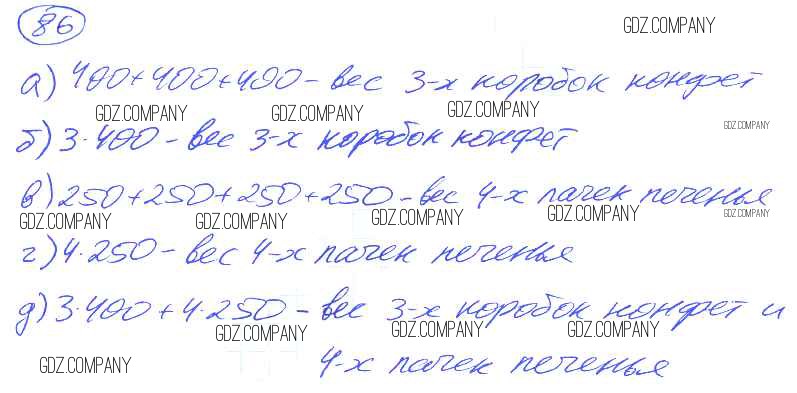 86
GDZ.COMPANY
а) 400+400+400 - вес 3-х коробок конфет
GDZ.COMPANY GDZ.COMPANY GDZ.COMPANY GDZ.COMPANY
б) 3·400 - вес 3-х коробок конфет
в) 250+250+250+250 - вес 4-х пачек печенья
GDZ.COMPANY GDZ.COMPANY GDZ.COMPANY GDZ.COMPANY GDZ.COMPANY
г) 4·250 - вес 4-х пачек печенья
д) 3·400 + 4·250 - вес 3-х коробок конфет и
GDZ.COMPANY GDZ.COMPANY GDZ.COMPANY
4-х пачек печенья
GDZ.COMPANY